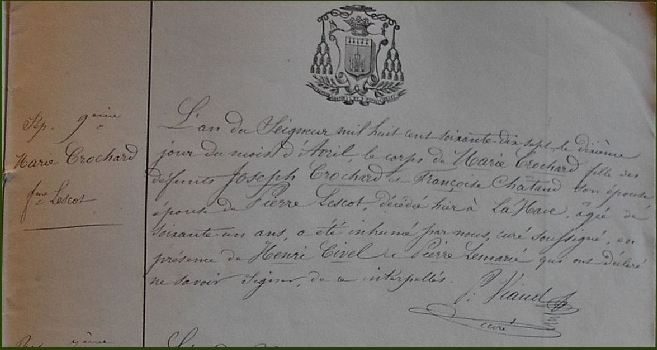 Sép. 9ème
Marie Crochard
fme Lescot
L'an du Seigneur mil huit cent soixante-dix sept le dixième
jour du mois d'Avril, le corps de Marie Crochard fille des
défunts Joseph Crochard & Françoise son épouse
épouse de Pierre Lescot décédée hier à La , âgée de
soixante-un ans, a été inhumé par nous, curé soussigné, en
présence de Henri Civel & Pierre Lemarie qui ont déclaré
ne savoir signer, de ce interpellés.
P. Viaud
curé